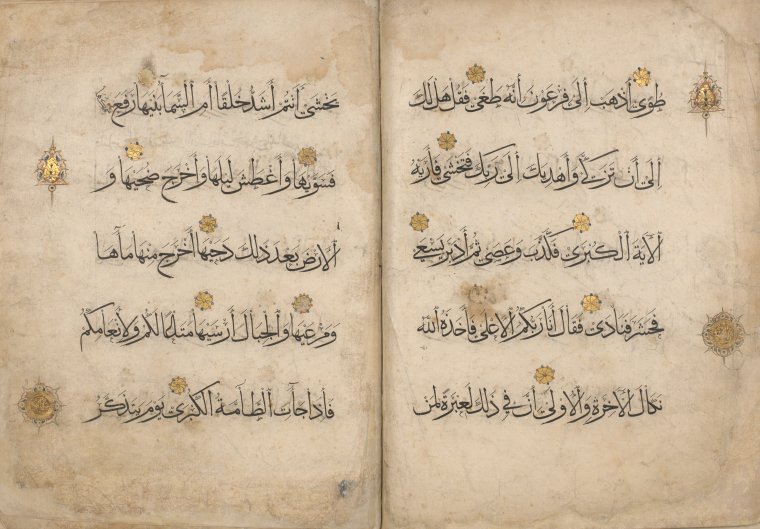 طُوًى أذهَب إلَى فِرعَونَ أنّهُ طَغَى فَقُل هَل لَكَ
إلَى أن تَزَكَّى وَأهدِيَكَ إلَى رَبِّكَ فَتَخشَى فَأرَيهُ
الآيَةَ الكُبرَى فَكَذَّبَ وَعَصَى ثُمَّ أدبَرَ يَسعَى
فَحَشَرَ فَنَادَى فَقَالَ أنَا رَبُّكُمُ الأعلَى فَأخَذَهُ اللّه
نَكَالَ الآخِرَةِ وَالأولَى إنَّ فِي ذَلِكَ لَعِبرَةً لِمَن
يَخشَى ءَأنتُم أشَدُّ خَلقًا أمِ السَّمَآ بَنَيهَا رَفَعَ
فَسَوَّيهَا وَأغطَشَ لَيلَهَا وَأخرَجَ ضُحَيهَا وَ
الأرضَ بَعدَ ذَلِكَ دَحَيهَا أخرَجَ مِنهَا مَآهَا
وَمَرعَيهَا وَالجِبَالَ أرسَيهَا مَتَاعًا لَكُم وَلِأنعَامِكُم
فَإذَا جَآتِ الطَّآمَّةُ الكُبرَى يَومَ يَتَذَكَّرُ